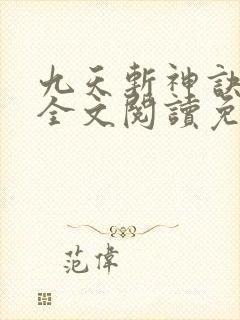 九天斬神訣
全文閱讀免
范偉